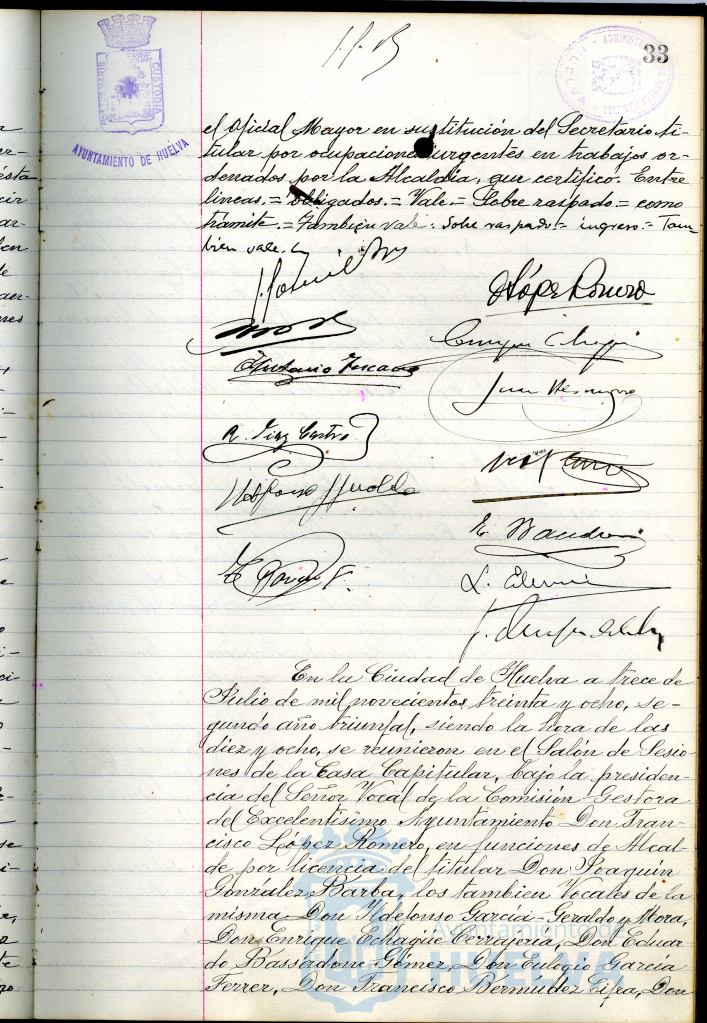 33
AYUNTAMIENTO DE HUELVA
CUSTODIA
el Oficial Mayor en sustitución del Secretario ti-
tular por ocupaciones urgentes en trabajos or-
denados por la Alcaldía, que certifico. Entre
lineas.= obligados.= Vale.= Sobre raspado.= como
trámite.= También vale. Sobre raspado = ingreso.= Tam-
bien vale.
F López Romero
R. Díaz Castro
Ildefonso Geraldo
En la Ciudad de Huelva a trece de
Julio de mil novecientos treinta y ocho, se-
gundo año triunfal, siendo la hora de las
diez y ocho, se reunieron en el Salón de Sesio-
nes de la Casa Capitular, bajo la presiden-
cia del Señor Vocal de la Comisión Gestora
del Excelentísimo Ayuntamiento Don Fran-
cisco López Romero, en funciones de Alcal-
de por licencia del titular Don Joaquín
González Barba, los tambien Vocales de la
misma Don Ildefonso García-Geraldo y Mora,
Don Enrique Echagüe Cerrajería, Don Eduar
do Bassadone Gómez, Don Eulogio García
Ferrer, Don Francisco Bermúdez Cifra, Don
Ayuntamiento de
HUELVA